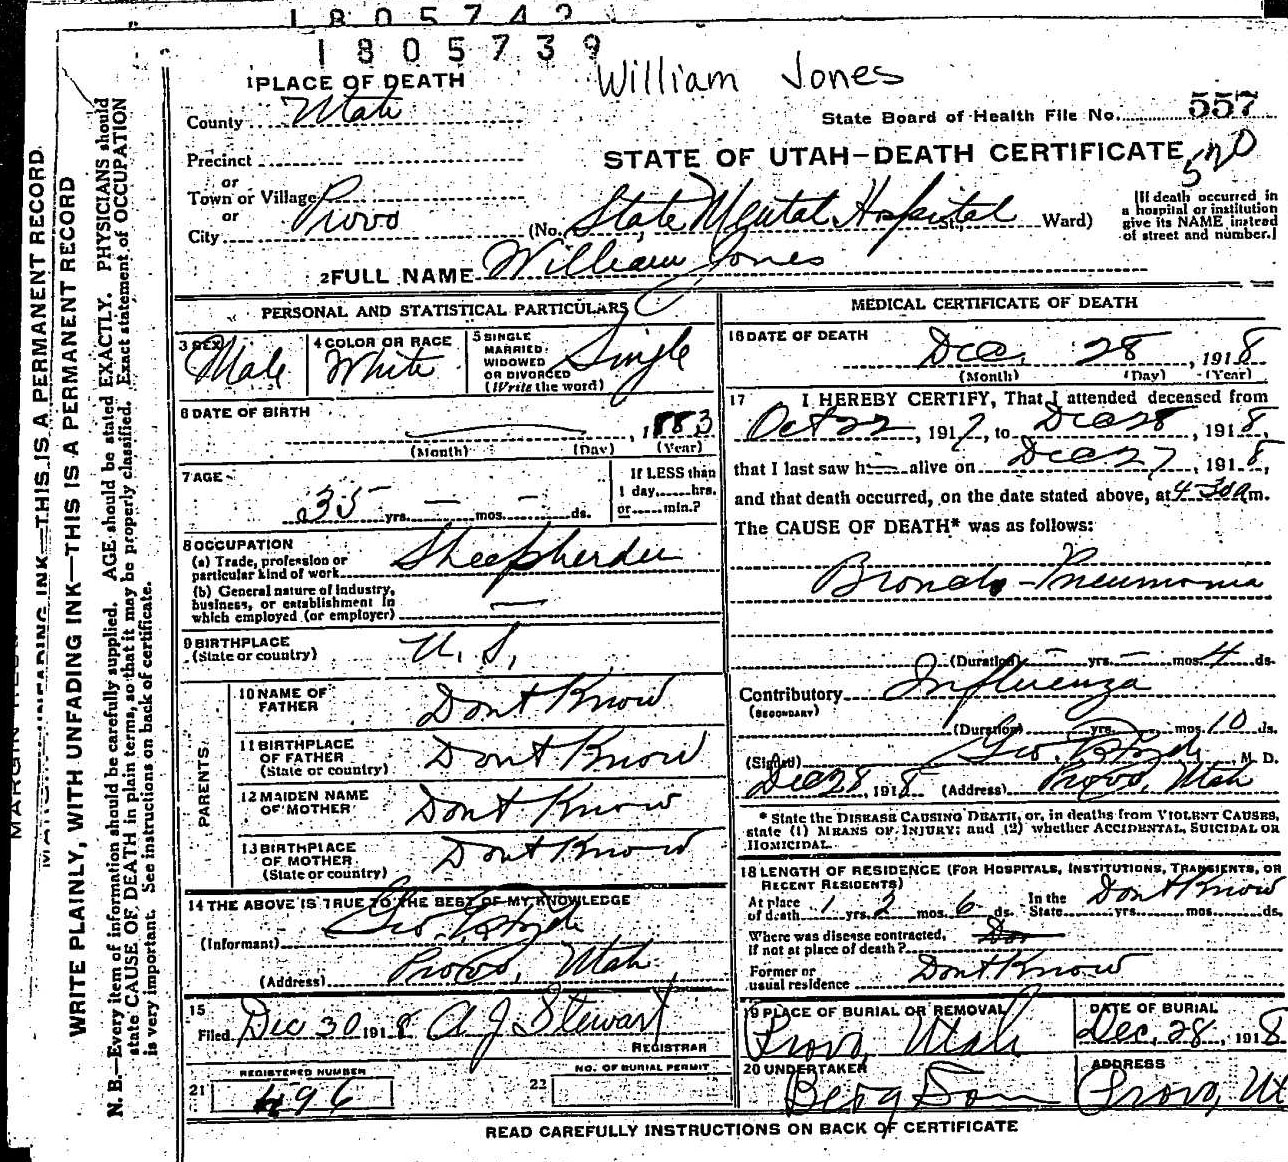 1805742
1805739
William Jones
1 PLACE OF DEATH
County Utah
State Board of Health File No. 557
Precinct
STATE OF UTAH—DEATH CERTIFICATE
520
or
Town or Village
or
City Provo (No. State Mental Hospital St., Ward)
[If death occurred in
a hospital or institution
give its NAME instead
of street and number.]
2 FULL NAME William Jones
PERSONAL AND STATISTICAL PARTICULARS
3 SEX Male
4 COLOR OR RACE White
5 SINGLE
MARRIED
WIDOWED
OR DIVORCED
(Write the word) Single
6 DATE OF BIRTH
, 1883
(Month) (Day) (Year)
7 AGE
35 yrs. — mos. — ds.
If LESS than
1 day,......hrs.
or......min.?
8 OCCUPATION
(a) Trade, profession or
particular kind of work Sheepherder
(b) General nature of Industry,
business, or establishment in
which employed (or employer) —
9 BIRTHPLACE
(State or country) U. S.
PARENTS
10 NAME OF
FATHER Dont Know
11 BIRTHPLACE
OF FATHER
(State or country) Dont Know
12 MAIDEN NAME
OF MOTHER Dont Know
13 BIRTHPLACE
OF MOTHER
(State or country) Dont Know
14 THE ABOVE IS TRUE TO THE BEST OF MY KNOWLEDGE
(Informant) Geo. E. Hyde
(Address) Provo, Utah
15
Filed Dec 30 1918 A J Stewart
REGISTRAR
21 REGISTERED NUMBER
496
22 NO. OF BURIAL PERMIT
MEDICAL CERTIFICATE OF DEATH
16 DATE OF DEATH
Dec. 28, 1918
(Month) (Day) (Year)
17 I HEREBY CERTIFY, That I attended deceased from
Oct 22, 1917, to Dec 28, 1918,
that I last saw h— alive on Dec 27, 1918,
and that death occurred, on the date stated above, at 4-30 a m.
The CAUSE OF DEATH* was as follows:
Broncho-Pneumonia
(Duration) — yrs. — mos. 4 ds.
Contributory Influenza
(SECONDARY)
(Duration) yrs. mos. 10 ds.
(Signed) Geo. E. Hyde, M. D.
Dec 28, 1918 (Address) Provo, Utah
* State the DISEASE CAUSING DEATH, or, in deaths from VIOLENT CAUSES,
state (1) MEANS OF INJURY; and (2) whether ACCIDENTAL, SUICIDAL OR
HOMICIDAL.
18 LENGTH OF RESIDENCE (FOR HOSPITALS, INSTITUTIONS, TRANSIENTS, OR
RECENT RESIDENTS)
At place
of death 1 yrs. 2 mos. 6 ds.
In the
State Dont Know yrs. mos. ds.
Where was disease contracted,
if not at place of death?
Former or
usual residence Dont Know
19 PLACE OF BURIAL OR REMOVAL
Provo, Utah
DATE OF BURIAL
Dec. 28, 1918
20 UNDERTAKER
Berg & Son
ADDRESS
Provo, Ut
READ CAREFULLY INSTRUCTIONS ON BACK OF CERTIFICATE
WRITE PLAINLY, WITH UNFADING INK—THIS IS A PERMANENT RECORD
N. B.—Every item of information should be carefully supplied. AGE should be stated EXACTLY. PHYSICIANS should
state CAUSE OF DEATH in plain terms, so that it may be properly classified. Exact statement of OCCUPATION
is very important. See instructions on back of certificate.